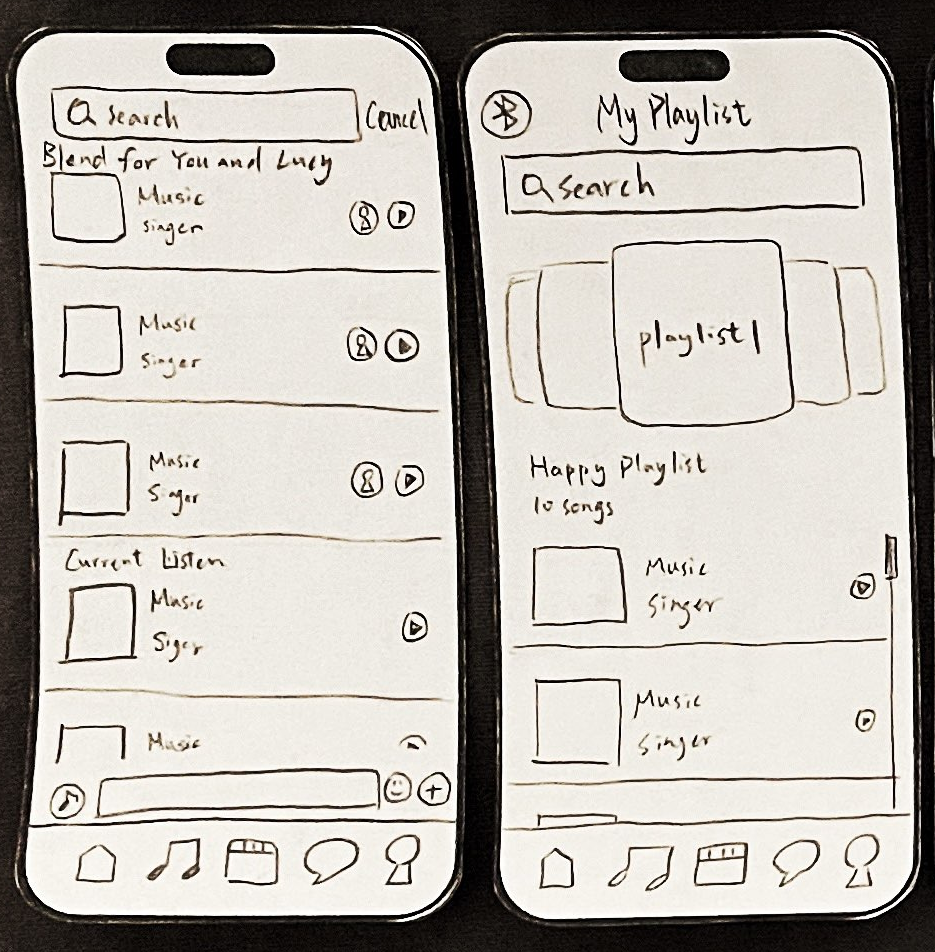 search
Cancel
Blend for You and Lucy
Music
singer
Music
Singer
Music
Singer
Current Listen
Music
Siger
Music
My Playlist
search
playlist1
Happy Playlist
10 songs
Music
Singer
Music
Singer